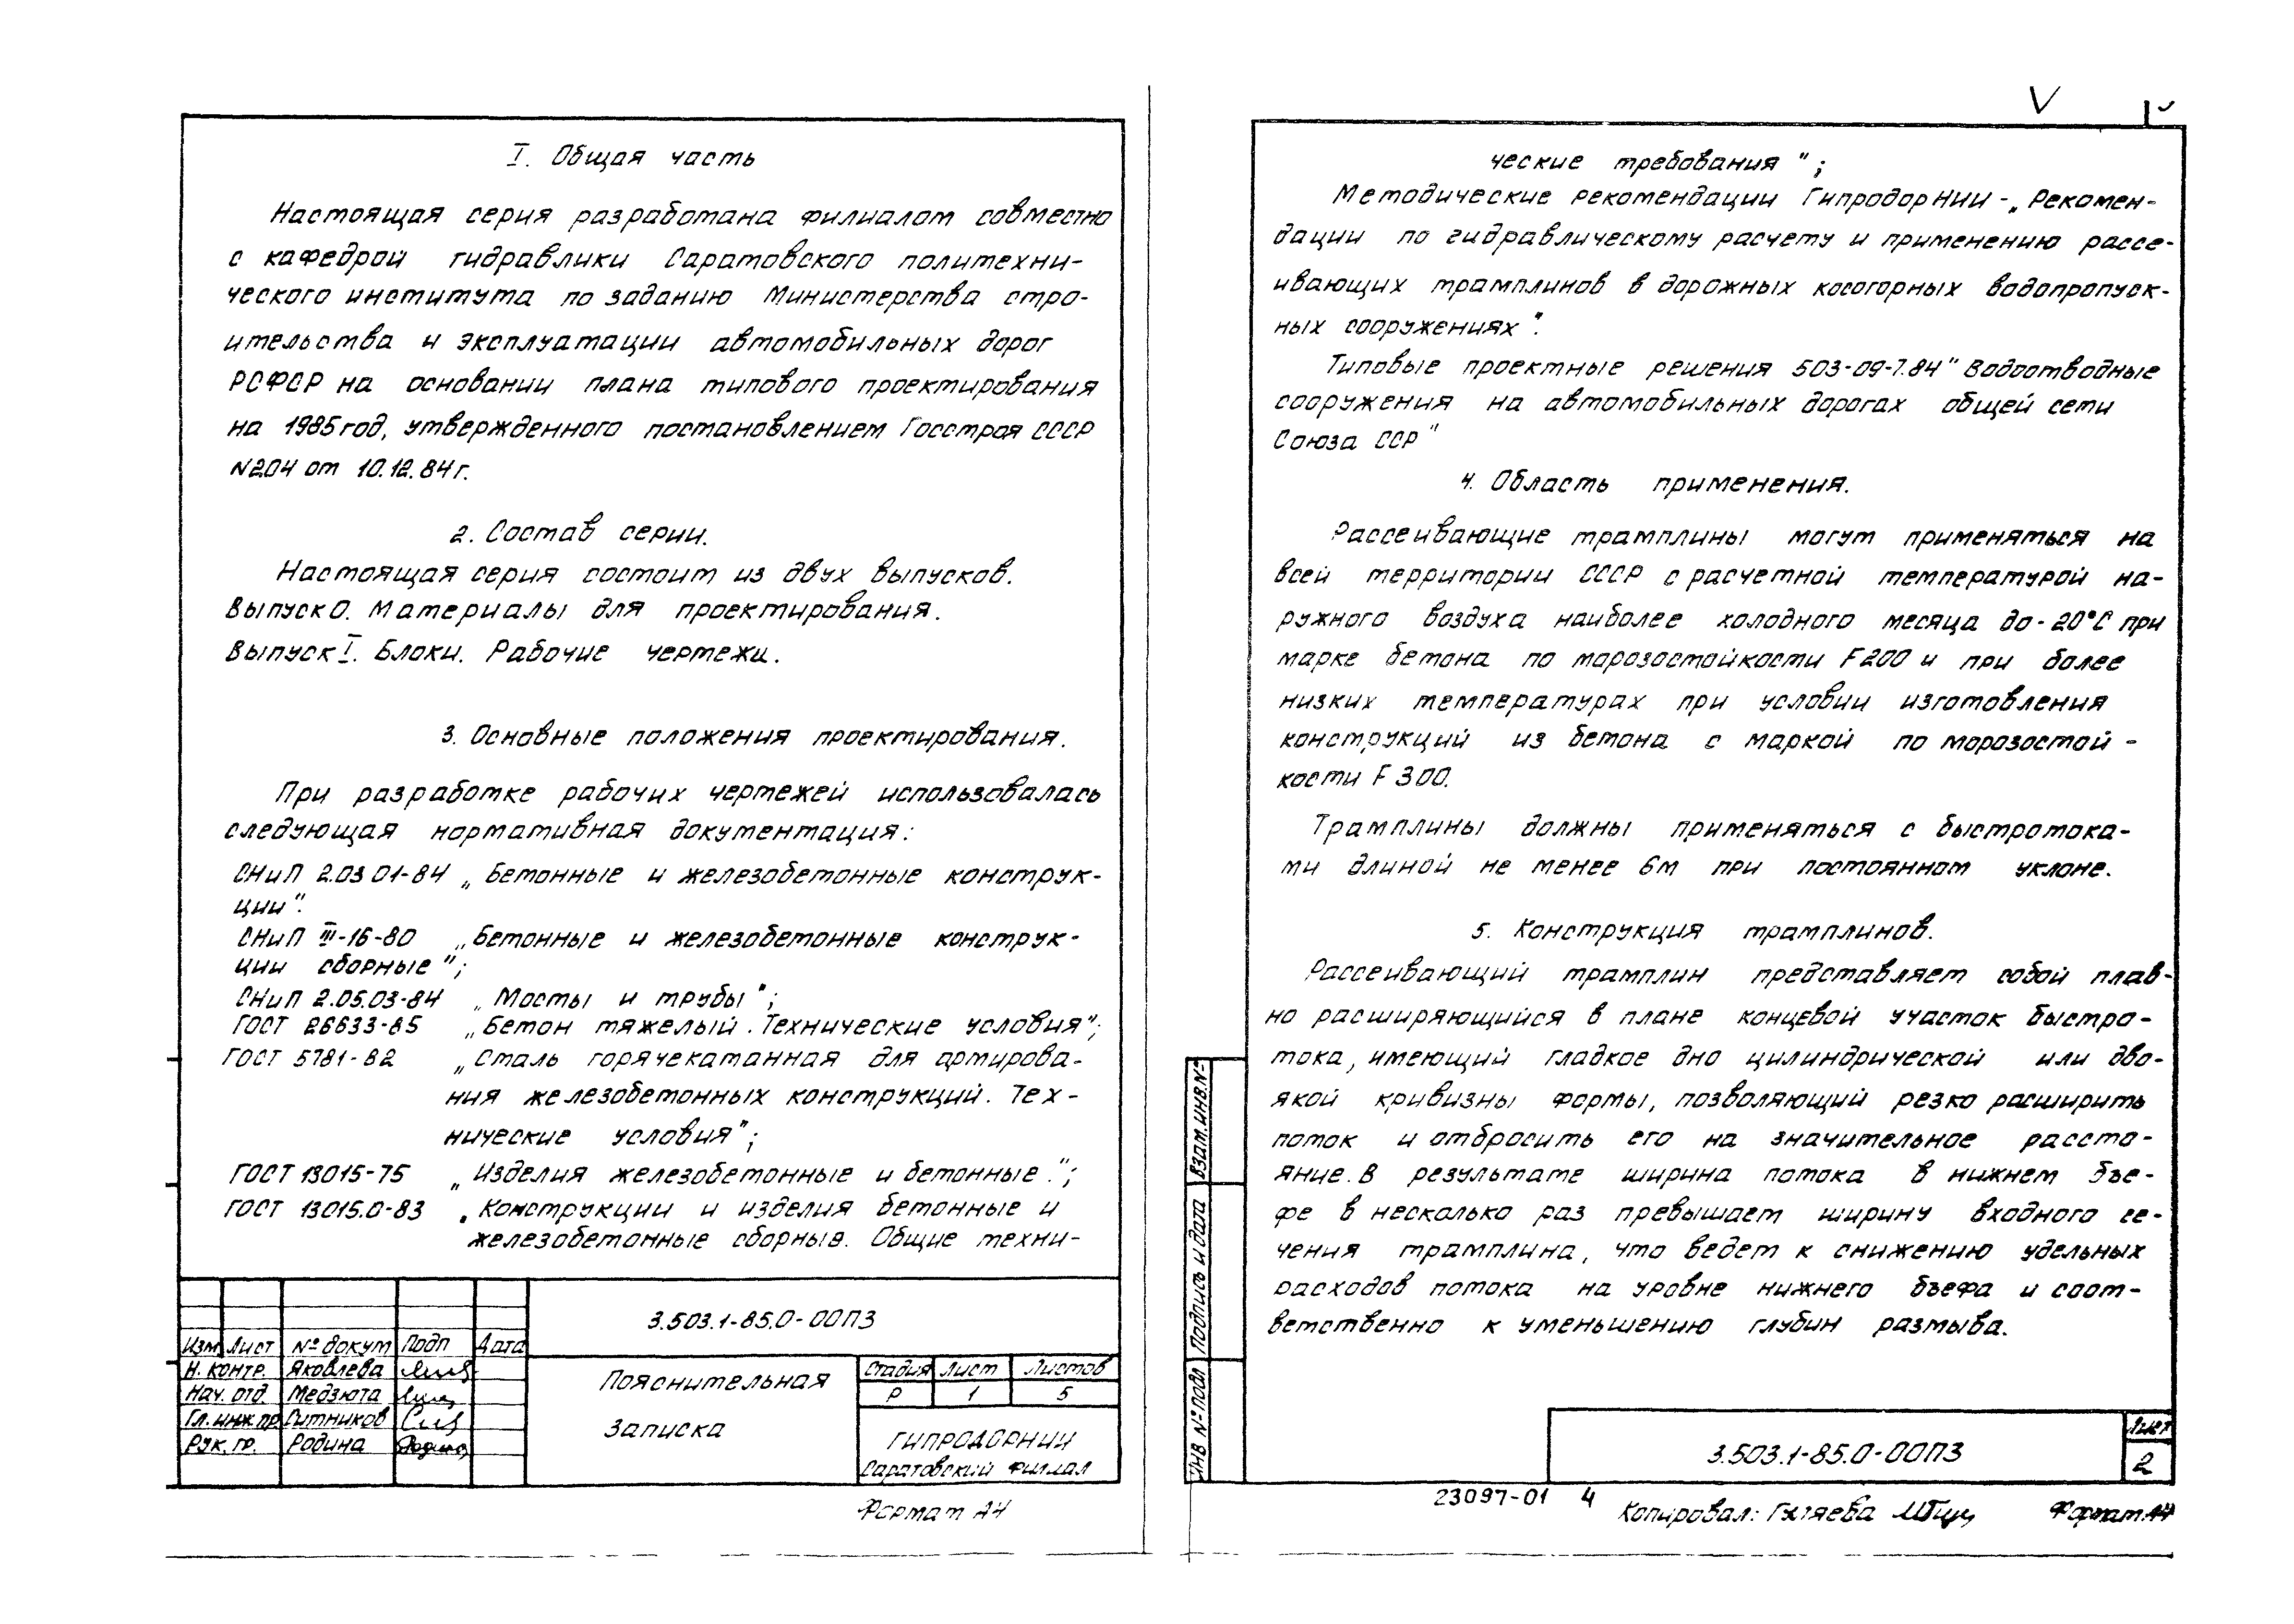 I. Общая часть
Настоящая серия разработана филиалом совместно
с кафедрой гидравлики Саратовского политехни-
ческого института по заданию Министерства стро-
ительства и эксплуатации автомобильных дорог
РСФСР на основании плана типового проектирования
на 1985 год, утвержденного постановлением Госстроя СССР
N204 от 10.12.84г.
2. Состав серии.
Настоящая серия состоит из двух выпусков.
Выпуск 0. Материалы для проектирования.
Выпуск I. Блоки. Рабочие чертежи.
3. Основные положения проектирования.
При разработке рабочих чертежей использовалась
следующая нормативная документация:
СНиП 2.03 01-84 „Бетонные и железобетонные конструк-
ции".
СНиП III-16-80 „Бетонные и железобетонные конструк-
ции сборные";
СНиП 2.05.03-84 „Мосты и трубы";
ГОСТ 26633-85 „Бетон тяжелый. Технические условия";
ГОСТ 5781-82 „Сталь горячекатанная для армирова-
ния железобетонных конструкций. Тех-
нические условия";
ГОСТ 13015-75 „Изделия железобетонные и бетонные.";
ГОСТ 13015.0-83 „Конструкции и изделия бетонные и
железобетонные сборные. Общие техни-
3.503.1-85.0-00ПЗ
Изм Лист № докум Подп Дата
Н. контр. Яковлева
Нач. отд. Медзюта
Гл. инж. пр Ситников
Рук. гр. Родина
Пояснительная
записка
Стадия Лист Листов
Р 1 5
ГИПРОДОРНИИ
Саратовский филиал
Формат А4
V
ческие требования";
Методические рекомендации ГипродорНИИ-„Рекомен-
дации по гидравлическому расчету и применению рассе-
ивающих трамплинов в дорожных косогорных водопропуск-
ных сооружениях".
Типовые проектные решения 503-09-7.84 "Водоотводные
сооружения на автомобильных дорогах общей сети
Союза ССР"
4. Область применения.
Рассеивающие трамплины могут применяться на
всей территории СССР с расчетной температурой на-
ружного воздуха наиболее холодного месяца до -20°С при
марке бетона по морозостойкости F200 и при более
низких температурах при условии изготовления
конструкций из бетона с маркой по морозостой-
кости F 300.
Трамплины должны применяться с быстротока-
ми длиной не менее 6м при постоянном уклоне.
5. Конструкция трамплинов.
Рассеивающий трамплин представляет собой плав-
но расширяющийся в плане концевой участок быстро-
тока, имеющий гладкое дно цилиндрической или дво-
якой кривизны формы, позволяющий резко расширить
поток и отбросить его на значительное рассто-
яние. В результате ширина потока в нижнем бъе-
фе в несколько раз превышает ширину входного се-
чения трамплина, что ведет к снижению удельных
расходов потока на уровне нижнего бъефа и соот-
ветственно к уменьшению глубин размыва.
Взам. инв. №
Подпись и дата
Инв № подл
3.503.1-85.0-00ПЗ
Лист
2
23097-01 4
Копировал:
Формат А4